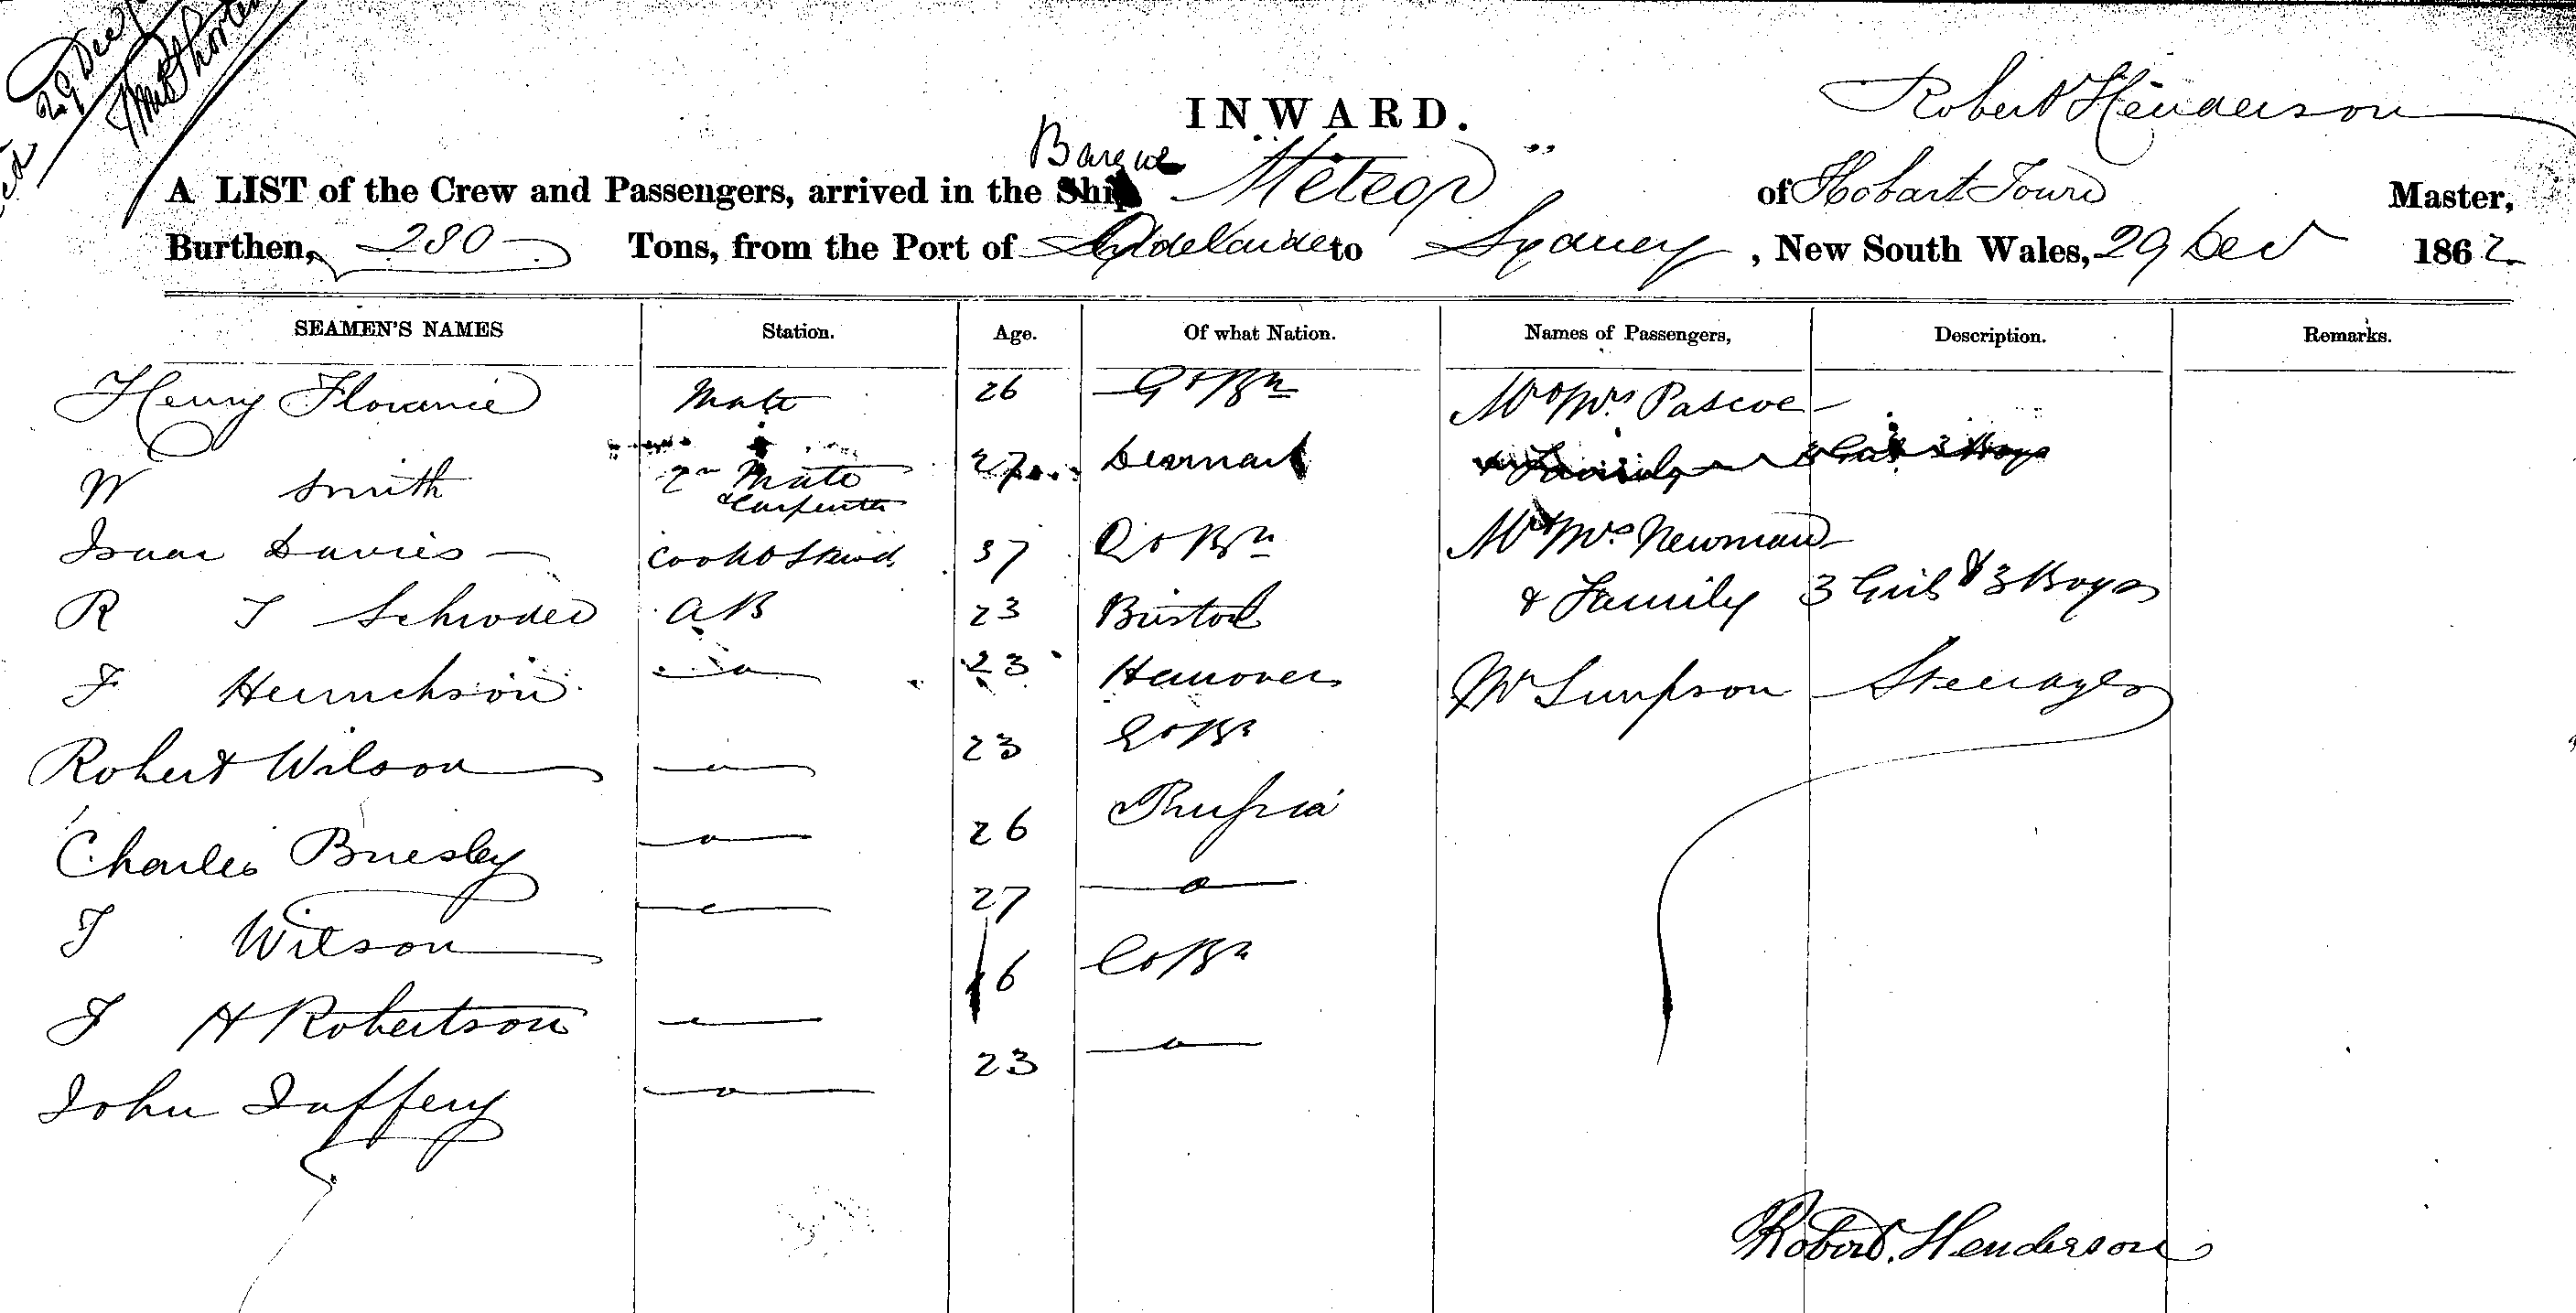 29 Decr
INWARD.
Robert Henderson
Barque
A LIST of the Crew and Passengers, arrived in the Ship "Meteor" of Hobart Town Master,
Burthen, 280 Tons, from the Port of Adelaide to Sydney, New South Wales, 29 Decr 1862
SEAMEN'S NAMES Station. Age. Of what Nation. Names of Passengers, Description. Remarks.
Henry Floranie Mate 26 Gt Bn Mr & Mrs Pascoe
W Smith 2nd Mate 27 Denmark & Family 3 Girls 3 Boys
& Carpenter
Isaac Davies Cook & Stewd 37 Gt Bn Mr & Mrs Newman
R T Schroder AB 23 Bristol & Family 3 Girls & 3 Boys
F Heinrichson 23 Hanover Mr Simpson Steerage
Robert Wilson 23 Gt Bn
Charles Briesley 26 Prussia
T Wilson 27
J H Robertson 16 Gt Bn
John Jaffery 23
Robert Henderson